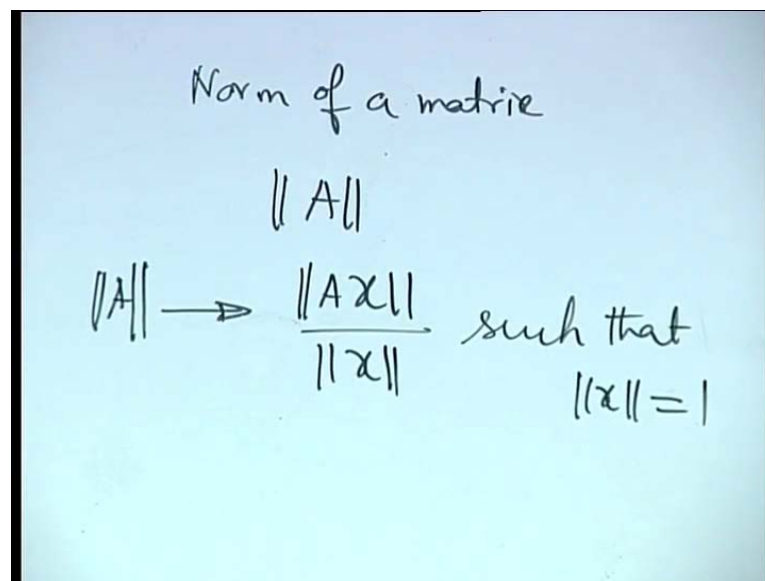 Norm of a matrix
||A||
||A|| → ||Ax|| / ||x|| such that
||x|| = 1